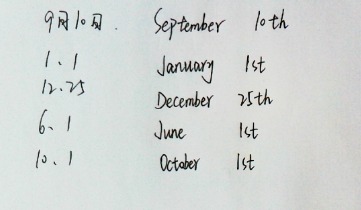 9月10日. September 10th
1.1 January 1st
12.25 December 25th
6.1 June 1st
10.1 October 1st